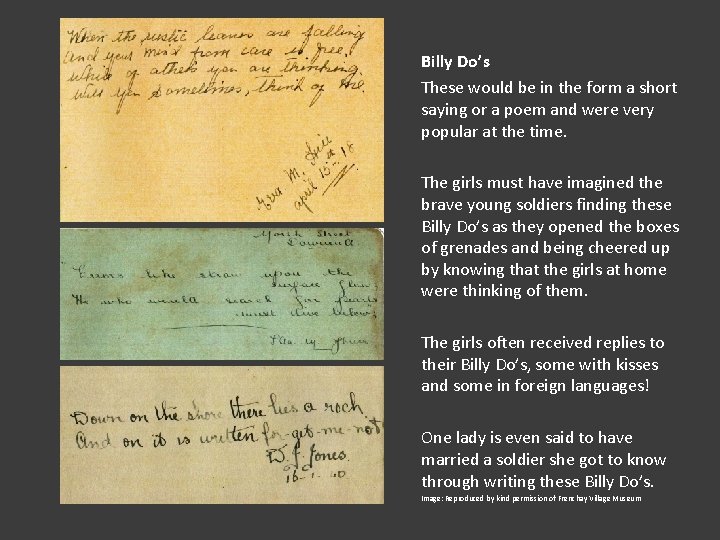 When the rustic leaves are falling
And your mind from care is free,
While of others you are thinking
Will you sometimes, think of me.
Eva M.
april 15th 18
North Street
Downend
Errors like straw upon the
surface flow;
He who would search for pearls
must dive below;
Down on the shore there lies a rock
And on it is written for-get-me-not
D. J. Jones.
16-1-40
Billy Do’s
These would be in the form a short
saying or a poem and were very
popular at the time.
The girls must have imagined the
brave young soldiers finding these
Billy Do’s as they opened the boxes
of grenades and being cheered up
by knowing that the girls at home
were thinking of them.
The girls often received replies to
their Billy Do’s, some with kisses
and some in foreign languages!
One lady is even said to have
married a soldier she got to know
through writing these Billy Do’s.
Image: Reproduced by kind permission of Frenchay Village Museum